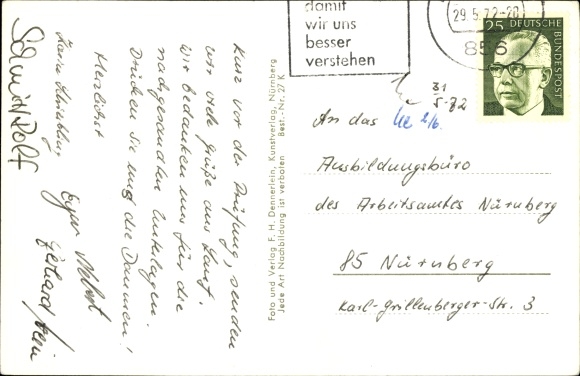 damit
wir uns
besser
verstehen
29.5.72-20
856
25 DEUTSCHE
BUNDESPOST
31
5.72
2/6.
An das
Ausbildungsbüro
des Arbeitsamtes Nürnberg
85 Nürnberg
Karl-Grillenberger-Str. 3
Foto und Verlag F. H. Dennerlein, Kunstverlag, Nürnberg
Jede Art Nachbildung ist verboten Best.-Nr. 27 K
Kurz vor der Prüfung, senden
wir viele Grüße aus Lauf.
Wir bedanken uns für die
nachgesandten Unterlagen.
Drücken Sie uns die Daumen!
Herzlichst
Schmidt Rolf
Gerhard